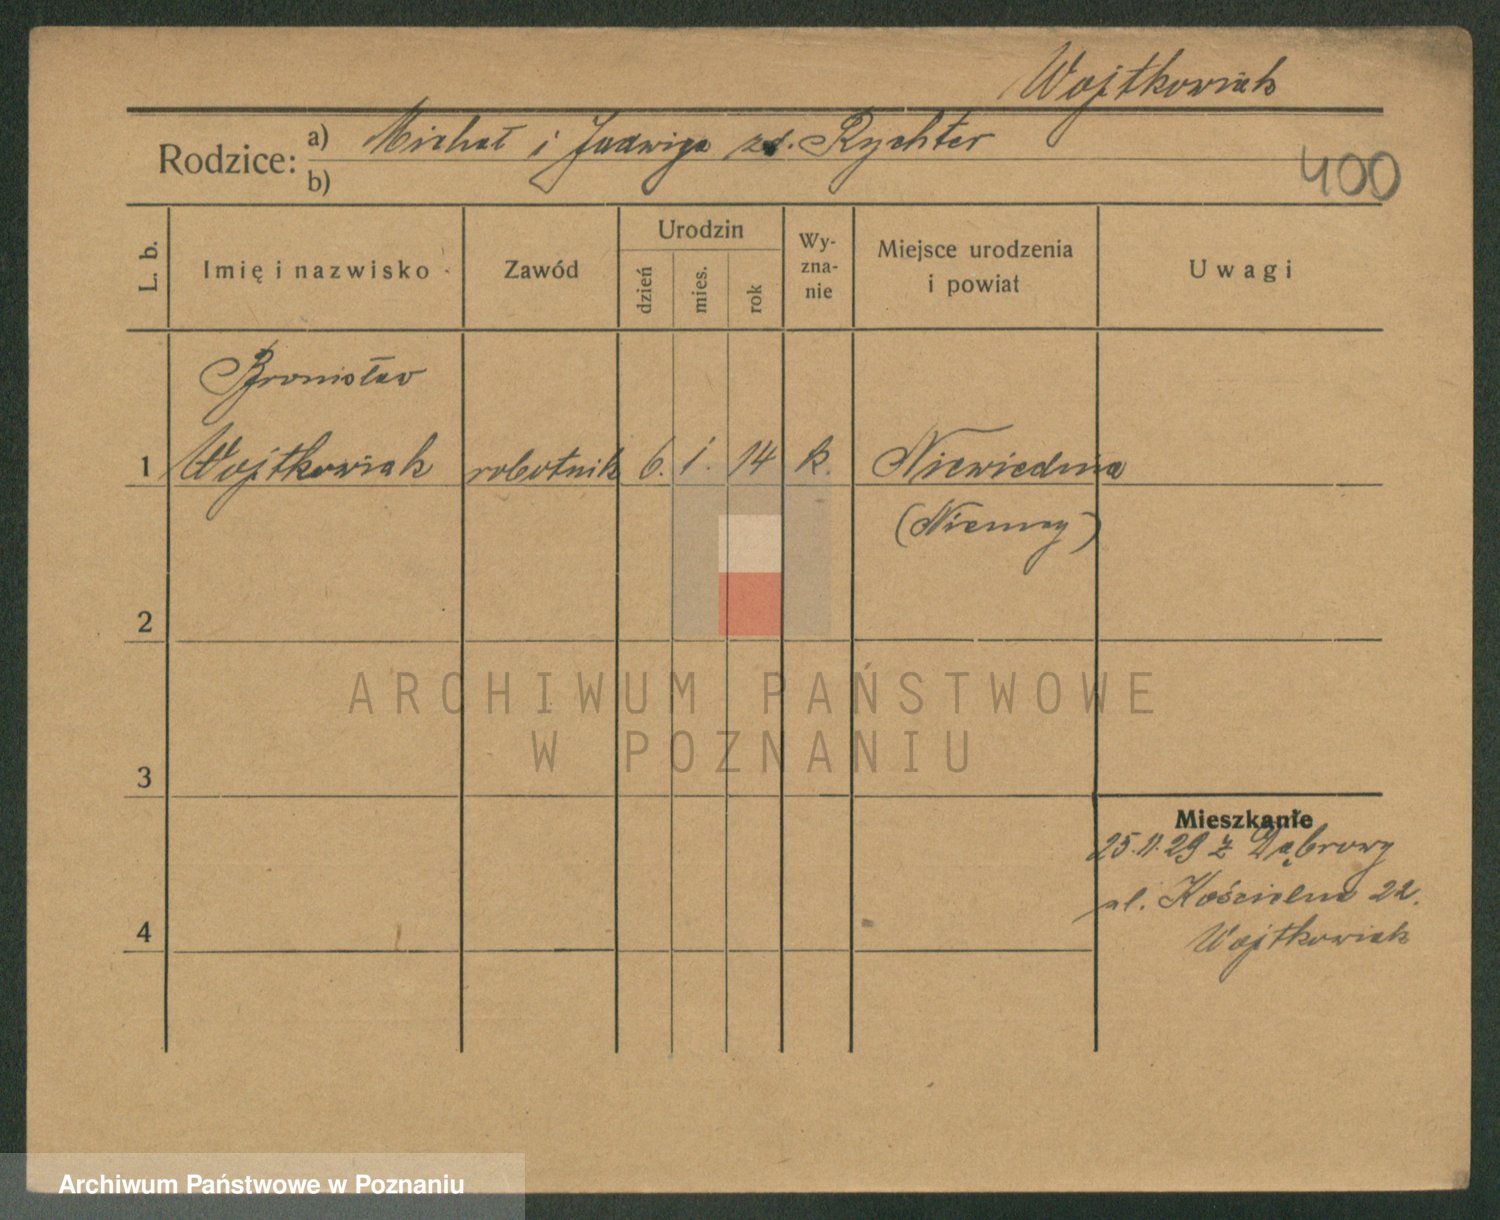 Wojtkowiak
Rodzice: a) Michał i Jadwiga zd. Rychter
b)
400
L. b.
Imię i nazwisko
Zawód
Urodzin
dzień
mies.
rok
Wy-
zna-
nie
Miejsce urodzenia
i powiat
Uwagi
Bronisław
1 Wojtkowiak robotnik 6. 1. 14 k. Niewiednia
(Niemcy)
2
ARCHIWUM PAŃSTWOWE
W POZNANIU
3
Mieszkanie
25.11.29 z Dąbrowy
ul. Kościelna 22.
Wojtkowiak
4
Archiwum Państwowe w Poznaniu